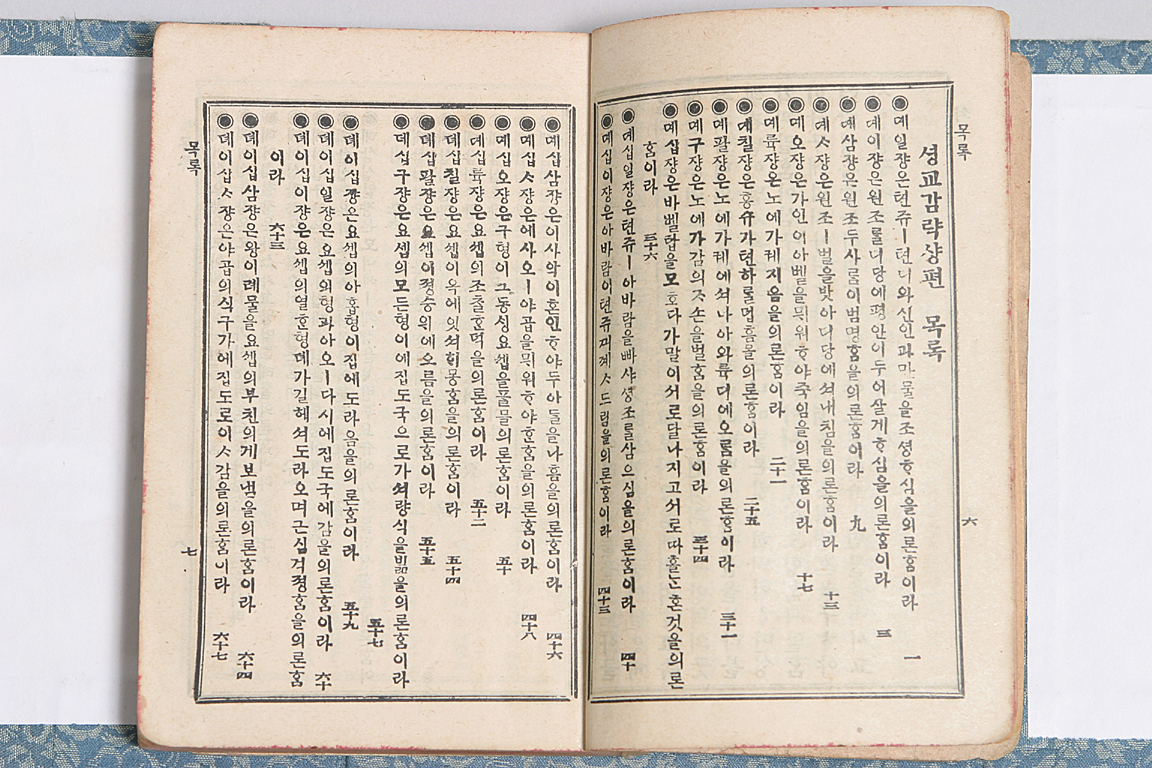 목록
六
셩교감략샹편 목록
●뎨일쟝은텬쥬ㅣ텬디와신인과만물을조셩ᄒᆞ심을의론홈이라 一
●뎨이쟝은원조를디당에평안이두어살게ᄒᆞ심을의론홈이라 三
●뎨삼쟝은원조두사ᄅᆞᆷ이범명홈을의론홈이라 九
●뎨ᄉᆞ쟝은원조ㅣ벌을밧아디당에셔내침을의론홈이라 十三
●뎨오쟝은가인이아벨을믜워ᄒᆞ야죽임을의론홈이라 十七
●뎨륙쟝은노에가궤지음을의론홈이라 二十一
●뎨칠쟝은홍슈가텬하를멉흠을의론홈이라 二十五
●뎨팔쟝은노에가궤에셔나아와륙디에오ᄅᆞᆷ을의론홈이라 三十一
●뎨구쟝은노에가감의ᄌᆞ손을벌홈을의론홈이라 三十四
●뎨십쟝은바벨탑을모호다가말이서로달나지고서로따흘논혼것을의론
홈이라 三十六
●뎨십일쟝은텬쥬ㅣ아바람을빠샤셩조를삼으심을의론홈이라 四十
●뎨십이쟝은아바람이텬쥬끠졔ᄉᆞ드림을의론홈이라 四十三
●뎨십삼쟝은이사악이혼인ᄒᆞ야두아ᄃᆞᆯ을나흠을의론홈이라 四十六
●뎨십ᄉᆞ쟝은에사오ㅣ야곱을믜워ᄒᆞ야혼홈을의론홈이라 四十八
●뎨십오쟝은구형이그동싱요셉을풀믈의론홈이라 五十
●뎨십륙쟝은요셉의조찰혼덕을의론홈이라 五十二
●뎨십칠쟝은요셉이옥에잇셔ᄒᆡ몽홈을의론홈이라 五十四
●뎨십팔쟝은요셉이졍승위에오름을의론홈이라 五十五
●뎨십구쟝은요셉의모든형이에집도국으로가셔량식을빎을의론홈이라
五十七
●뎨이십쟝은요셉의아홉형이집에도라옴을의론홈이라 五十九
●뎨이십일쟝은요셉의형과아오ㅣ다시에집도국에감을의론홈이라 六十
●뎨이십이쟝은요셉의열혼형뎨가길헤셔도라오며근심걱졍홈을의론홈
이라 六十三
●뎨이십삼쟝은왕이례물을요셉의부친의게보냄을의론홈이라 六十四
●뎨이십ᄉᆞ쟝은야곱의식구가에집도로이ᄉᆞ감을의론홈이라 六十七
목록
七